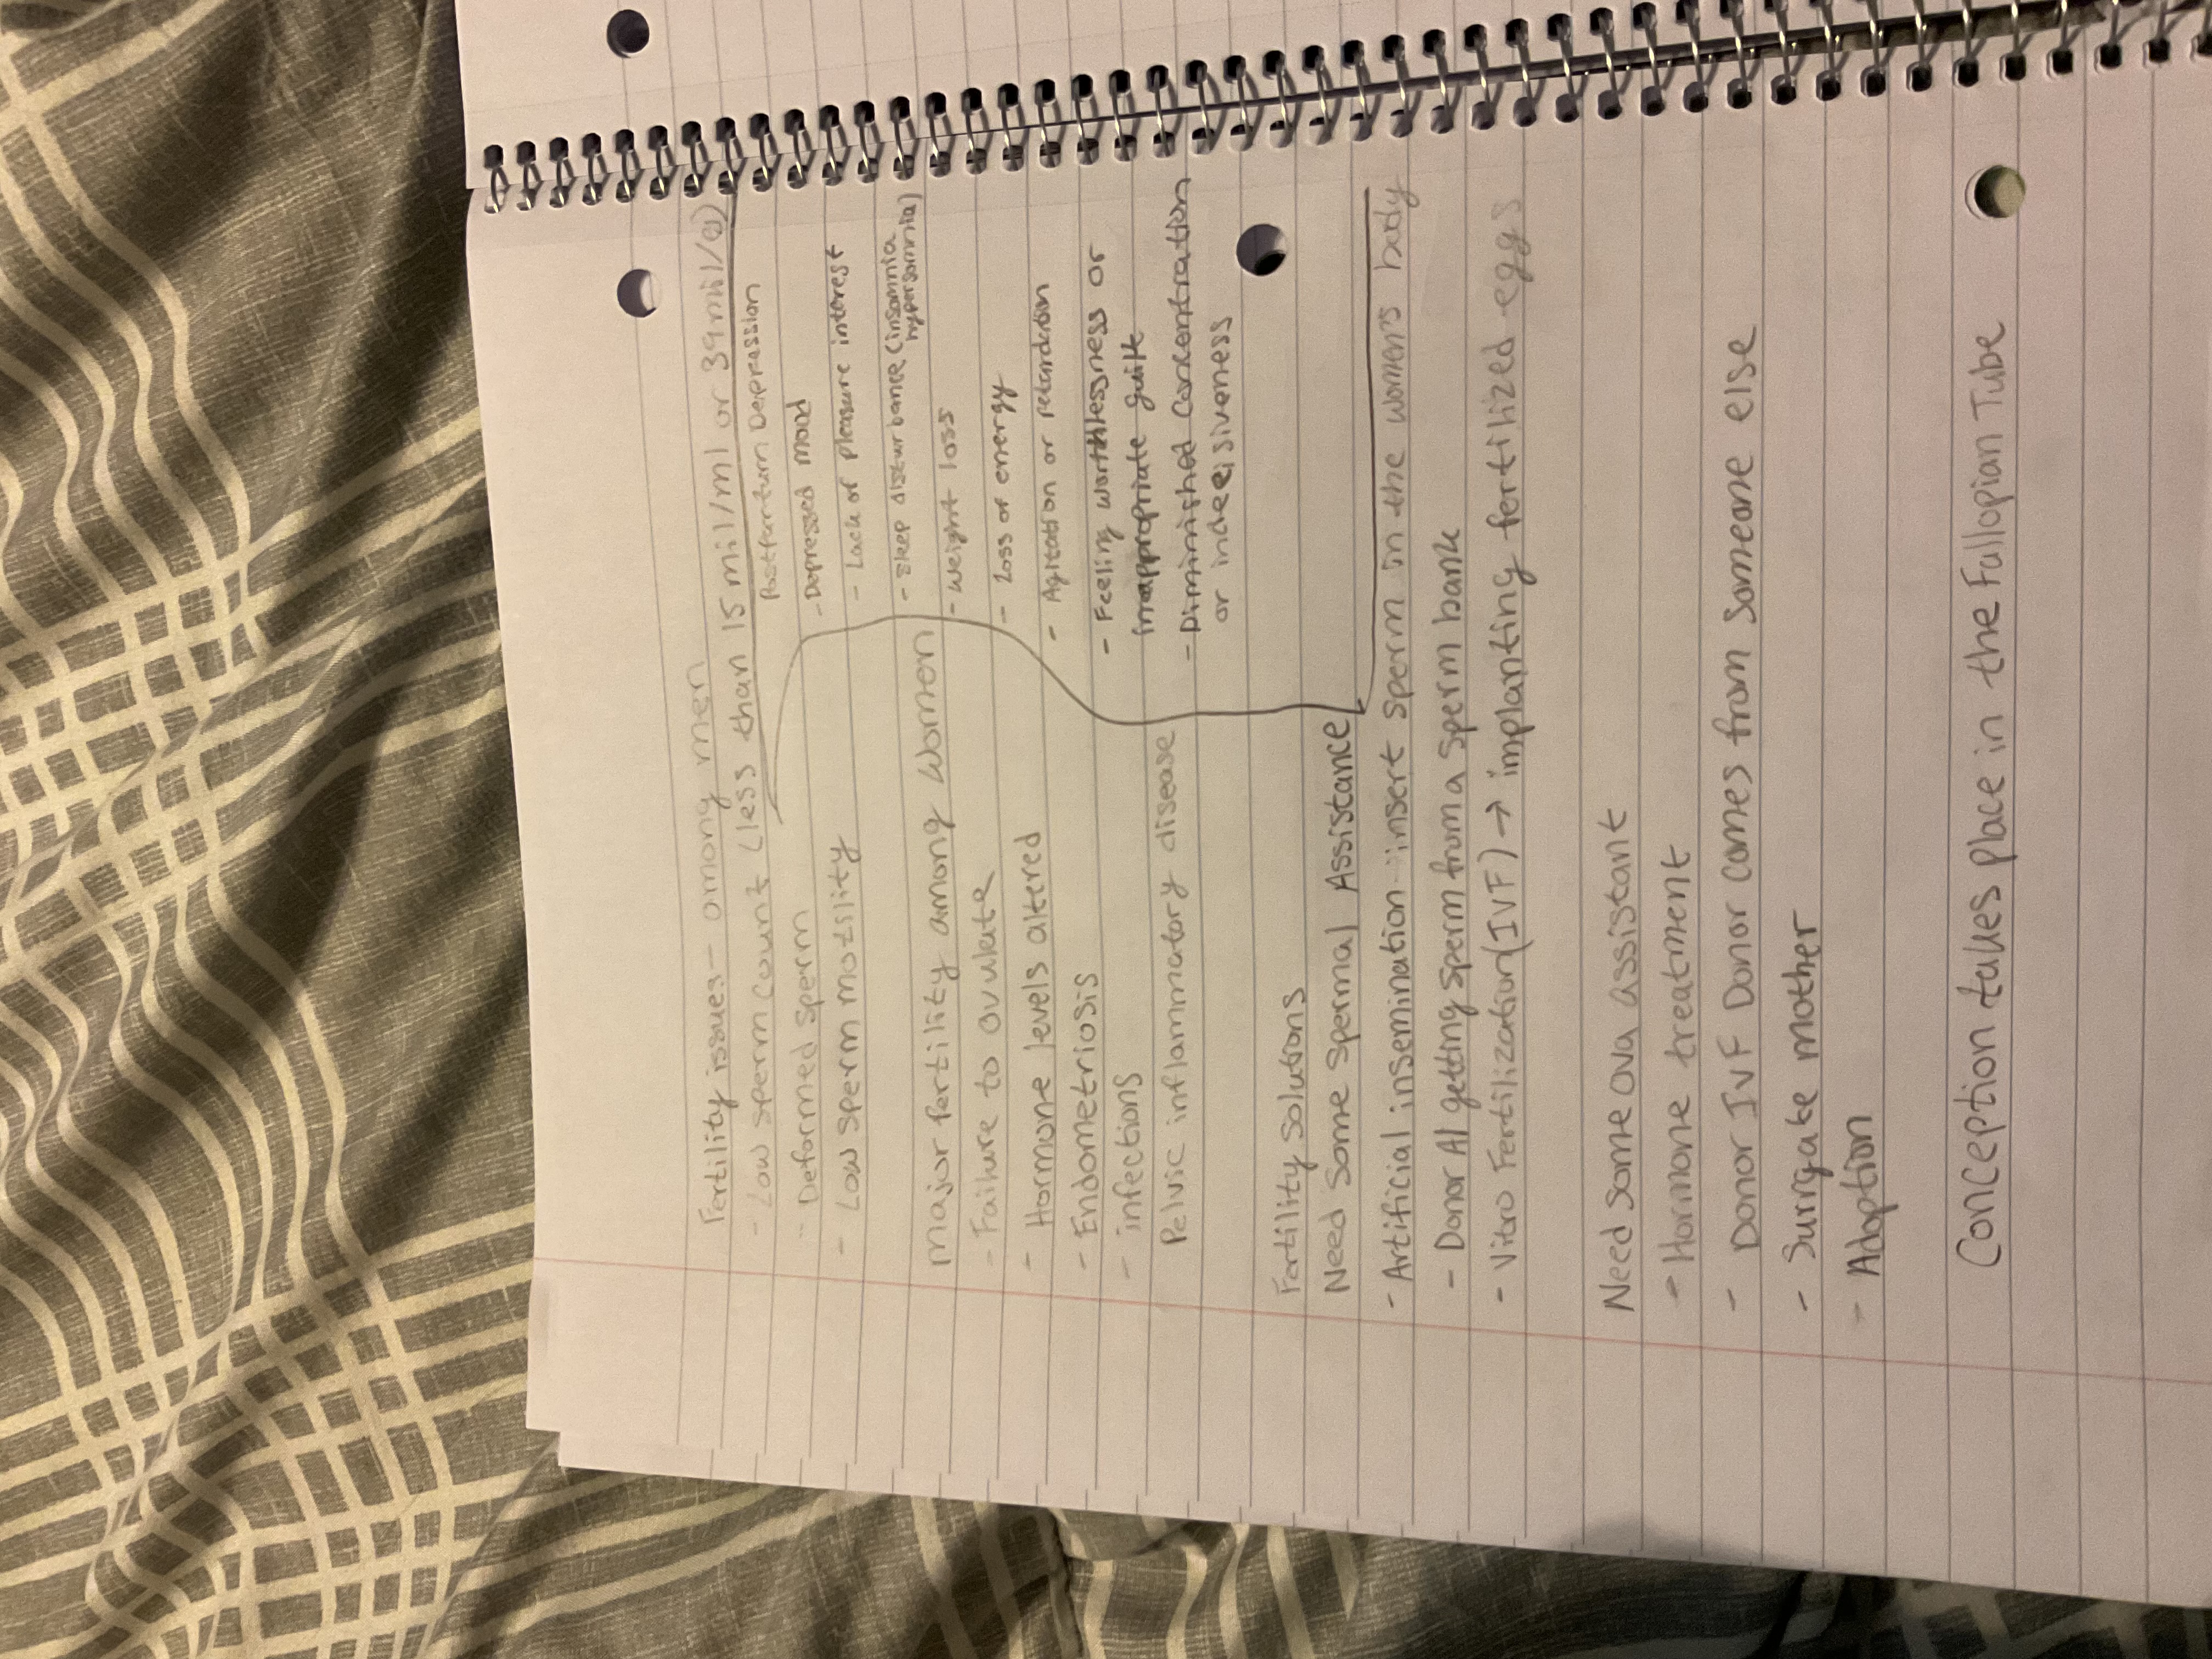 Fertility issues- among men
- Low sperm count (less than 15 mil/ml or 39mil/e)
- Deformed sperm
- Low sperm motility
major fertility among Women
- Failure to ovulate
- Hormone levels altered
- Endometriosis
- infections
Pelvic inflammatory disease
Postpartum Depression
- Depressed mood
- Lack of pleasure interest
- Sleep disturbance (insomnia
hypersomnia)
- Weight loss
- Loss of energy
- Agitation or retardation
- Feeling worthlessness or
inappropriate guilt
- Diminished concentration
or indecisiveness
Fertility Solutions
Need Some Spermal Assistance
- Artificial insemination - insert sperm in the women's body
- Donor AI getting sperm from a sperm bank
- Vitro Fertilization(IVF) → implanting fertilized eggs
Need some ova assistant
- Hormone treatment
- Donor IVF Donor comes from someone else
- Surrgate mother
- Adoption
Conception takes place in the Fallopian Tube